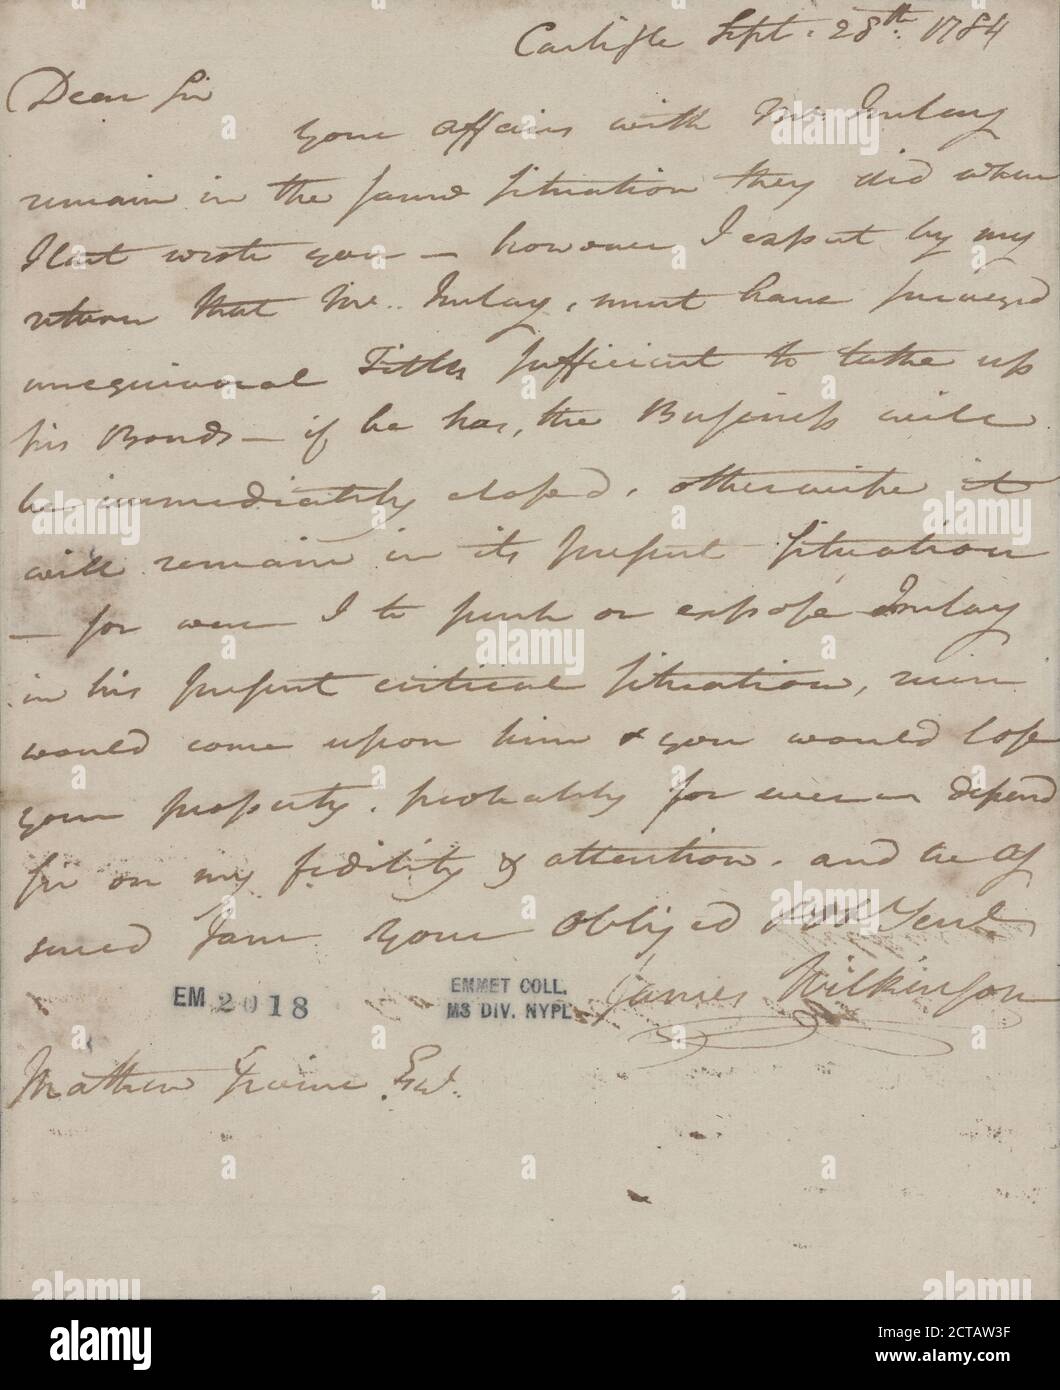 Carlisle Sept. 28th. 1784
Dear Sir
your affairs with Mr. Imlay
remain in the same situation they did when
I last wrote you — however I expect by my
return that Mr. Imlay, must have procured
unequivocal Titles sufficient to take up
his Bonds — if he has, the Business will
be immediately closed, otherwise it
will remain in its present situation
— for was I to push or expose Imlay
in his present critical situation, ruin
would come upon him & you would lose
your property, probably for ever — depend
Sir on my fidility & attention, and be as
sured I am your obliged Servt.
James Wilkinson
EM 2018
EMMET COLL.
MS DIV. NYPL
Mathew Irvine Esqr.
alamy
alamy
Image ID: 2CTAW3F
www.alamy.com